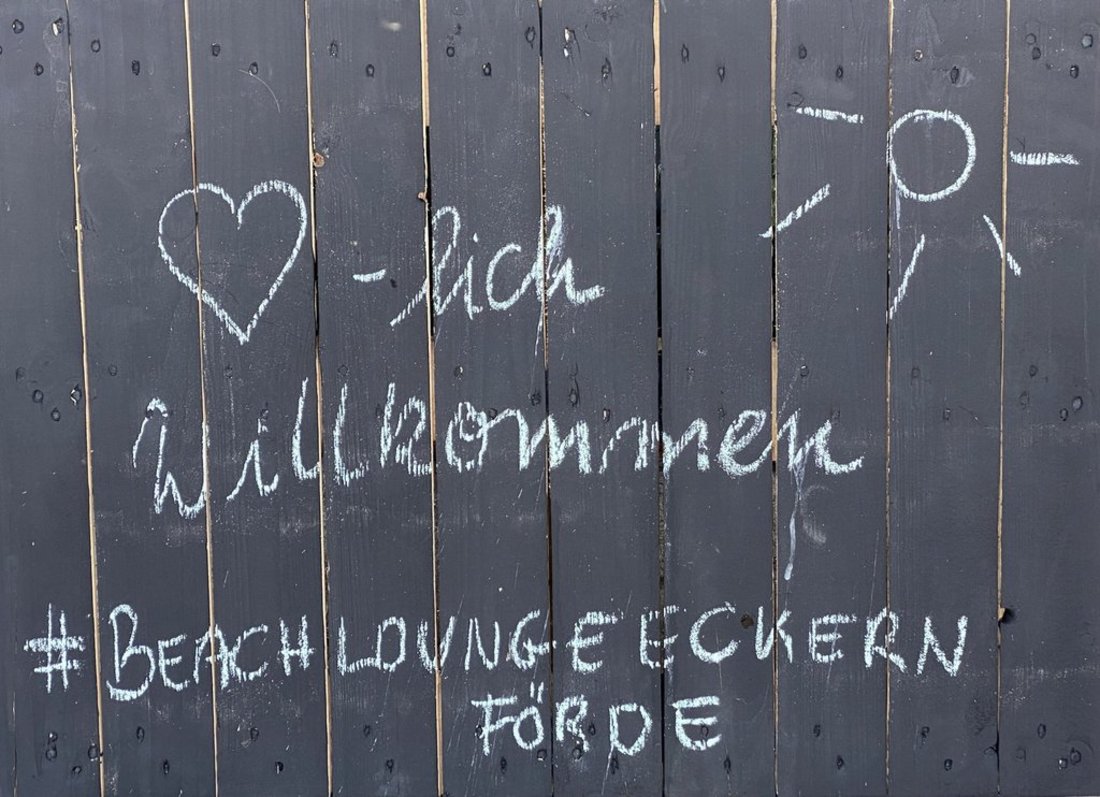 ♡-lich
Willkommen
#BEACHLOUNGEECKERN
FÖRDE